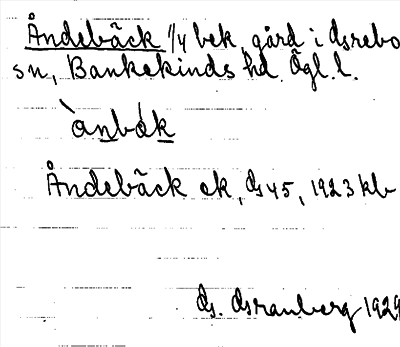 Åndebäck 1/4 bek. gård i Asrebo
sn, Bankekinds hd. Ögl. l.
ànbák
Åndebäck ek, 45, 1923 kb
1929